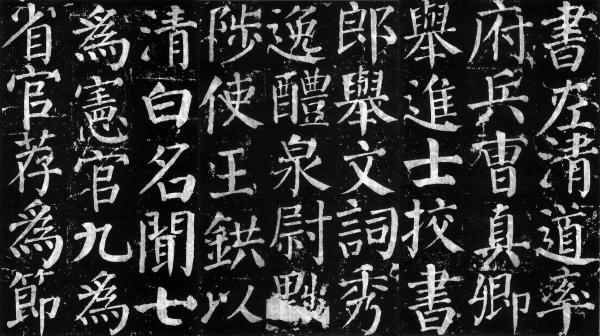 書左清道率
府兵曹真卿
舉進士挍書
郎舉文詞秀
逸醴泉尉黜
陟使王鉷以
清白名聞七
為憲官九為
省官荐為節